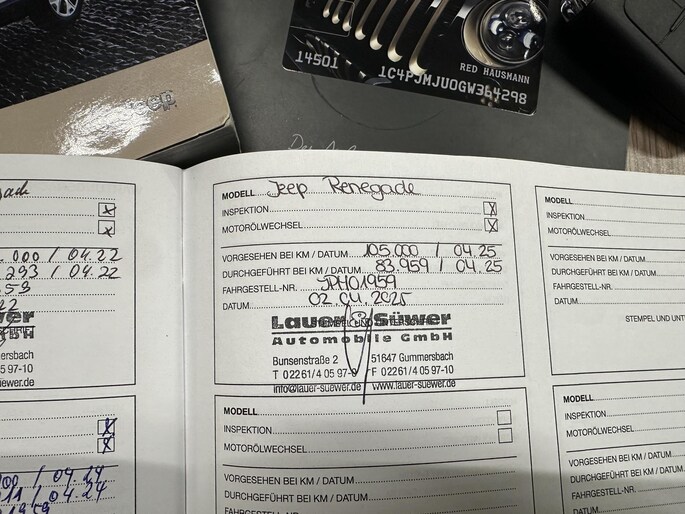 Jeep
14501
RED HAUSMANN
1C4PJMJU0GW364298
.000 / 04.22
293 / 04.22
ersbach
05 97-10
.de
/ 04.24
11 / 04.24
1959
MODELL Jeep Renegade
INSPEKTION X
MOTORÖLWECHSEL X
VORGESEHEN BEI KM / DATUM 105.000 / 04.25
DURCHGEFÜHRT BEI KM / DATUM 83.959 / 04.25
FAHRGESTELL-NR. JPH01959
DATUM 02.04.2025
STEMPEL UND UNTERSCHRIFT
Lauer & Süwer
Automobile GmbH
Bunsenstraße 2 51647 Gummersbach
T 02261/4 05 97-0 F 02261/4 05 97-10
info@lauer-suewer.de www.lauer-suewer.de
MODELL
INSPEKTION
MOTORÖLWECHSEL
VORGESEHEN BEI KM / DATUM
DURCHGEFÜHRT BEI KM / DATUM
FAHRGESTELL-NR.
DATUM
MODELL
INSPEKTION
MOTORÖLWECHSEL
VORGESEHEN BEI KM / DATUM
DURCHGEFÜHRT BEI KM / DATUM
FAHRGESTELL-NR.
DATUM
STEMPEL UND UNT
MODELL
INSPEKTION
MOTORÖLWECHSEL
VORGESEHEN BEI KM
DURCHGEFÜHRT BEI KM
FAHRGESTELL-NR.
DATUM